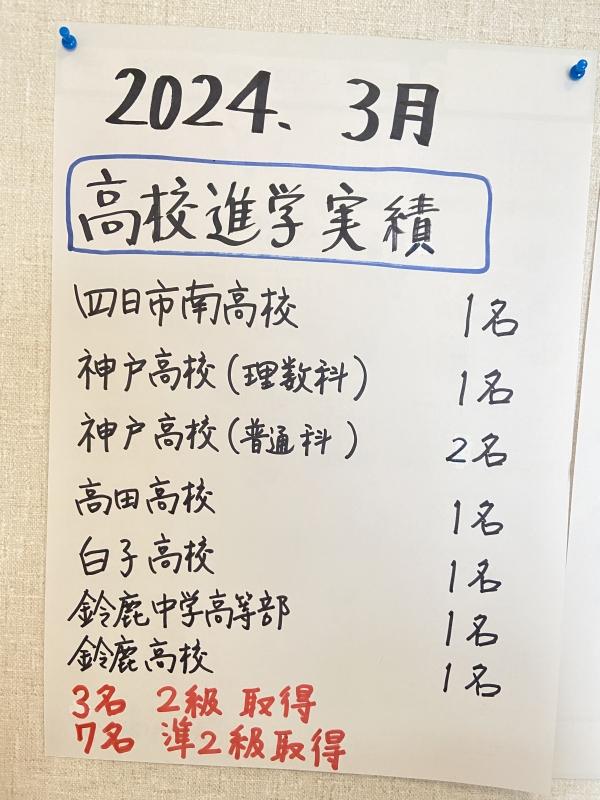 2024、3月
高校進学実績
四日市南高校 1名
神戸高校(理数科) 1名
神戸高校(普通科) 2名
高田高校 1名
白子高校 1名
鈴鹿中学高等部 1名
鈴鹿高校 1名
3名 2級 取得
7名 準2級取得